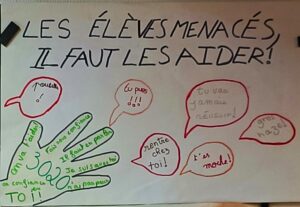 LES ÉLÈVES MENACÉS,
IL FAUT LES AIDER!
tu pues
!!!
tu vas
jamais
réussir!
rentre
chez
toi!
t'es
moche!
on va t'aider
3020
Fais nous confiance
Il faut en parler
Je suis avec toi
n'ai pas peur
ai confiance
en
TOI!